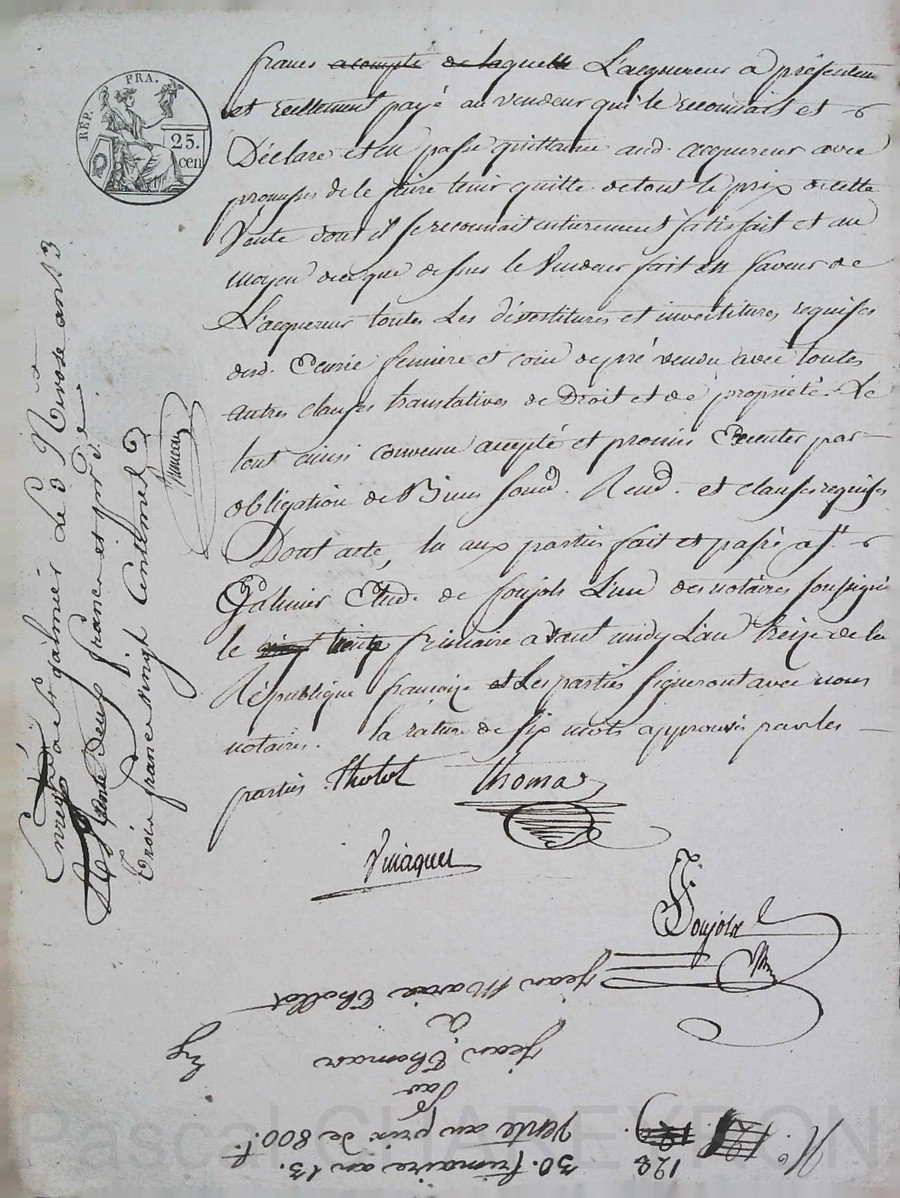 RÉP. FRA.
25. cen
francs acompte de laquelle L'acquereur a présentem
et réellement payé au vendeur qui le reconnait et
Déclare et en passe quittance aud. acquereur avec
promesses de le faire tenir quitte de tout le prix de cette
Vente dont il se reconnait entierement satisfait et au
moyen de ce que dessus le Vendeur fait en faveur de
L'acquereur toutes Les dévestitures et investitures requises
desd. Ecurie feniere et coin de pré vendu avec toutes
autres clauses translatives de Droit et de propriété. Le
tout ainsi convenu accepté et promis Executer par
obligation de Biens soum. Rend. et clauses requises
Dont acte, lu aux parties fait et passé a St.
Galmier Etude de Soujols L'un des notaires soussignés
le trente frimaire avant midy L'an treize de la
République françoize et Les parties signeront avec nous
notaires. la rature de six mots approuvée par les
parties Tholot Thomas
Soujols
Enregistré a St galmier Le 3 Nivose an 13
Reçu trente deux francs et pour
trois francs vingt Centimes
Jean Marie Thollot
à
Jean Thomas
Par
Vente au prix de 800 f.
30. frimaire an 13.
N.º 128
Pascal CHAREYRON